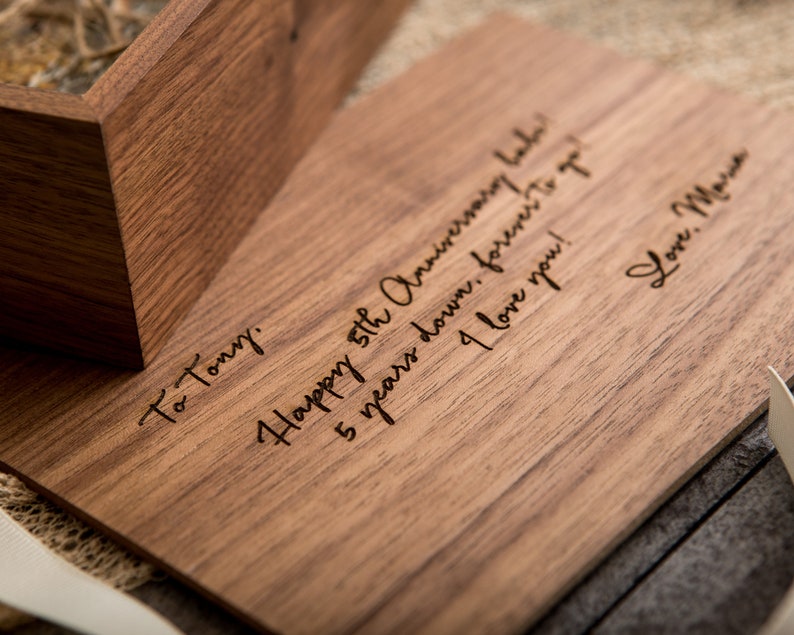 To Tony,
Happy 5th Anniversary bab!
5 years down, forever to go!
I love you!
Love, Maria